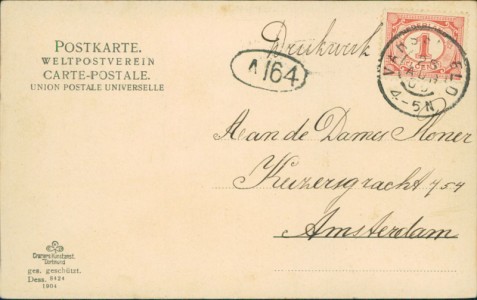 Drukwerk
POSTKARTE.
WELTPOSTVEREIN
CARTE-POSTALE.
UNION POSTALE UNIVERSELLE
A 164
1
4-5N
Aan de Dames
Keizersgracht 757
Amsterdam
Dortmund
ges. geschützt.
Dess. 8424
1904